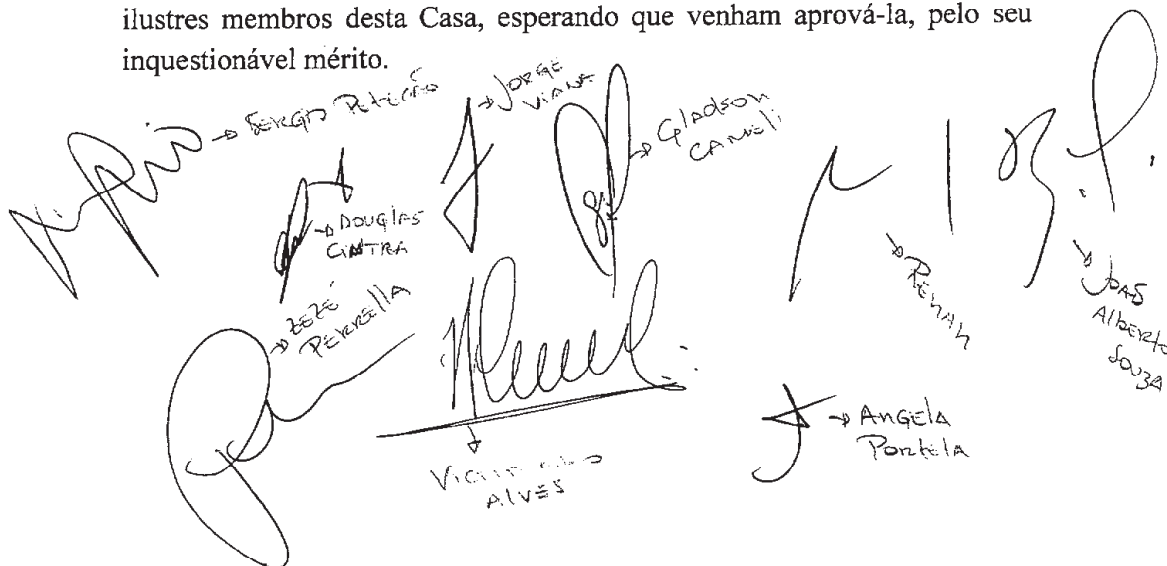 ilustres membros desta Casa, esperando que venham aprová-la, pelo seu
inquestionável mérito.
SERGIO PETECÃO
JORGE
VIANA
Gladson
CAMELI
DOUGLAS
CINTRA
RENAN
JOAO
Alberto
SOUZA
ZEZÉ
PERRELLA
ANGELA
Portela
ALVES